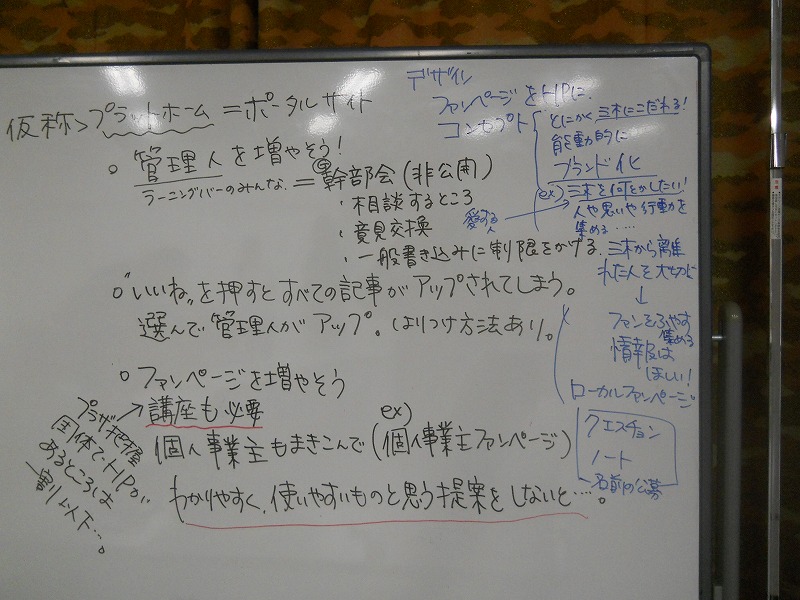 仮称>プラットホーム=ポータルサイト
○管理人を増やそう!
ラーニングバーのみんな。=幹部会(非公開)
・相談するところ
・意見交換
・一般書き込みに制限をかける。
○"いいね"を押すとすべての記事がアップされてしまう。
選んで管理人がアップ。はりつけ方法あり。
○ファンページを増やそう
講座も必要
ex)
個人事業主もまきこんで(個人事業主ファンページ)
わかりやすく、使いやすいものと思う提案をしないと…。
プラザ把握
団体で、HPが
あるところは
一割以下…。
デザイン
ファンページをHPに、
コンセプト
とにかく三木にこだわる!
能動的に
ブランド化
ex)三木を何とかしたい!
愛する人
人や思いや行動を
集める……
三木から離
れた人を大切に
↓
ファンをふやす
集める
情報は
ほしい!
ローカルファンページ
クエスチョン
ノート
名前の公募